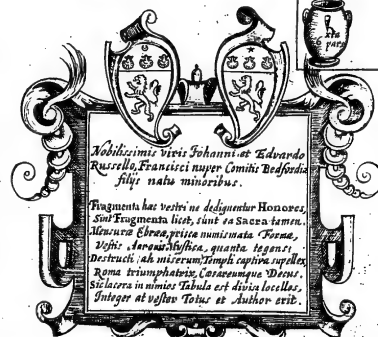 xta
6 pars
Nobilissimis viris Iohanni et Edvardo
Russello, Francisci nuper Comitis Bedfordiæ
filijs natu minoribus.
Fragmenta hæc vestri ne dedignentur Honores,
Sint Fragmenta licet, sunt ea Sacra tamen.
Mensuræ Ebreæ, prisca numismata Formæ,
Vestis Aaronis Mystica, quanta tegens:
Destructi (ah miserum) Templi captiva supellex,
Roma triumphatrix, Cæsareumque Decus.
Sic lacera in nimios Tabula est divisa locellos,
Integer at vester Totus et Author erit.